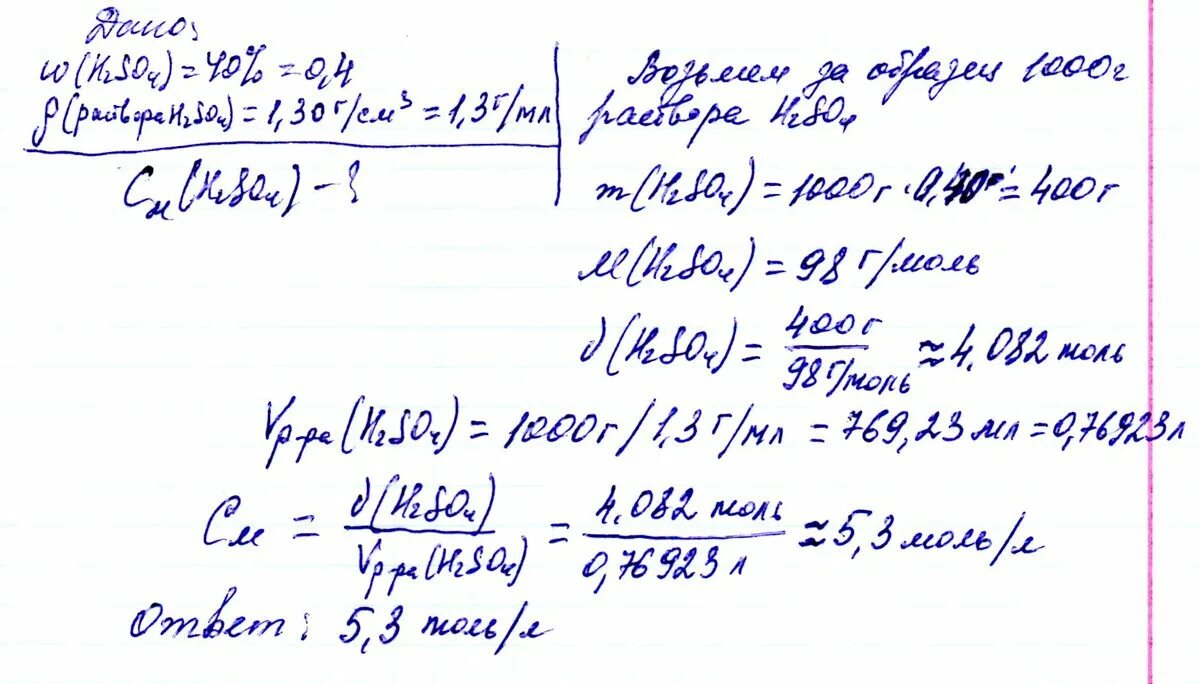 Дано:
ω(H₂SO₄) = 40% = 0,4
ρ(раствора H₂SO₄) = 1,30 г/см³ = 1,3 г/мл
Cм(H₂SO₄) - ?
Возьмем за образец 1000г
раствора H₂SO₄
m(H₂SO₄) = 1000г · 0,40 = 400г
M(H₂SO₄) = 98 г/моль
ν(H₂SO₄) = 400г / 98 г/моль ≈ 4.082 моль
Vр-ра(H₂SO₄) = 1000г / 1,3 г/мл = 769,23 мл = 0,76923 л
Cм = ν(H₂SO₄) / Vр-ра(H₂SO₄) = 4.082 моль / 0,76923 л ≈ 5,3 моль/л
Ответ: 5,3 моль/л